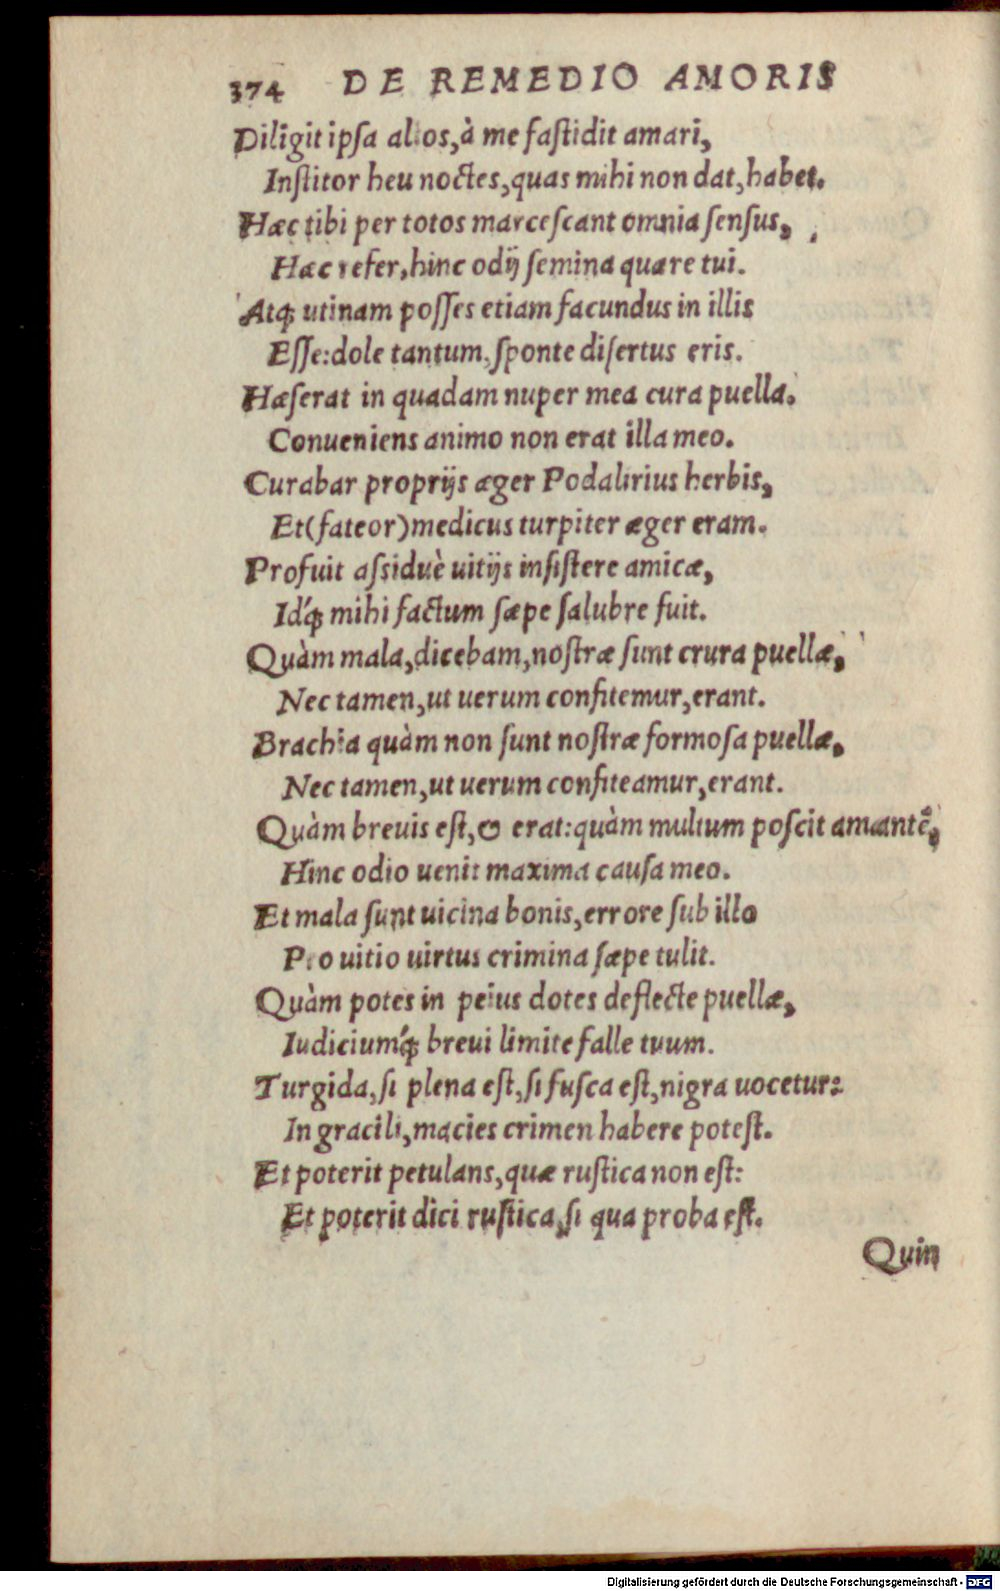 374 DE REMEDIO AMORIS
Diligit ipſa alios, à me faſtidit amari,
Inſtitor heu noctes, quas mihi non dat, habet.
Hæc tibi per totos marceſcant omnia ſenſus,
Hæc refer, hinc odij ſemina quære tui.
Atq; utinam poſſes etiam facundus in illis
Eſſe: dole tantum, ſponte diſertus eris.
Hæſerat in quadam nuper mea cura puella.
Conueniens animo non erat illa meo.
Curabar proprijs æger Podalirius herbis,
Et (fateor) medicus turpiter æger eram.
Profuit aſsiduè uitijs inſiſtere amicæ,
Idq́; mihi factum ſæpe ſalubre fuit.
Quàm mala, dicebam, noſtræ ſunt crura puellæ,
Nec tamen, ut uerum confitemur, erant.
Brachia quàm non ſunt noſtræ formoſa puellæ,
Nec tamen, ut uerum confiteamur, erant.
Quàm breuis eſt, & erat: quàm multum poſcit amantẽ,
Hinc odio uenit maxima cauſa meo.
Et mala ſunt uicina bonis, errore ſub illo
Pro uitio uirtus crimina ſæpe tulit.
Quàm potes in peius dotes deflecte puellæ,
Iudiciumq́; breui limite falle tuum.
Turgida, ſi plena eſt, ſi fuſca eſt, nigra uocetur:
In gracili, macies crimen habere poteſt.
Et poterit petulans, quæ ruſtica non eſt:
Et poterit dici ruſtica, ſi qua proba eſt.
Quin
Digitalisierung gefördert durch die Deutsche Forschungsgemeinschaft - DFG